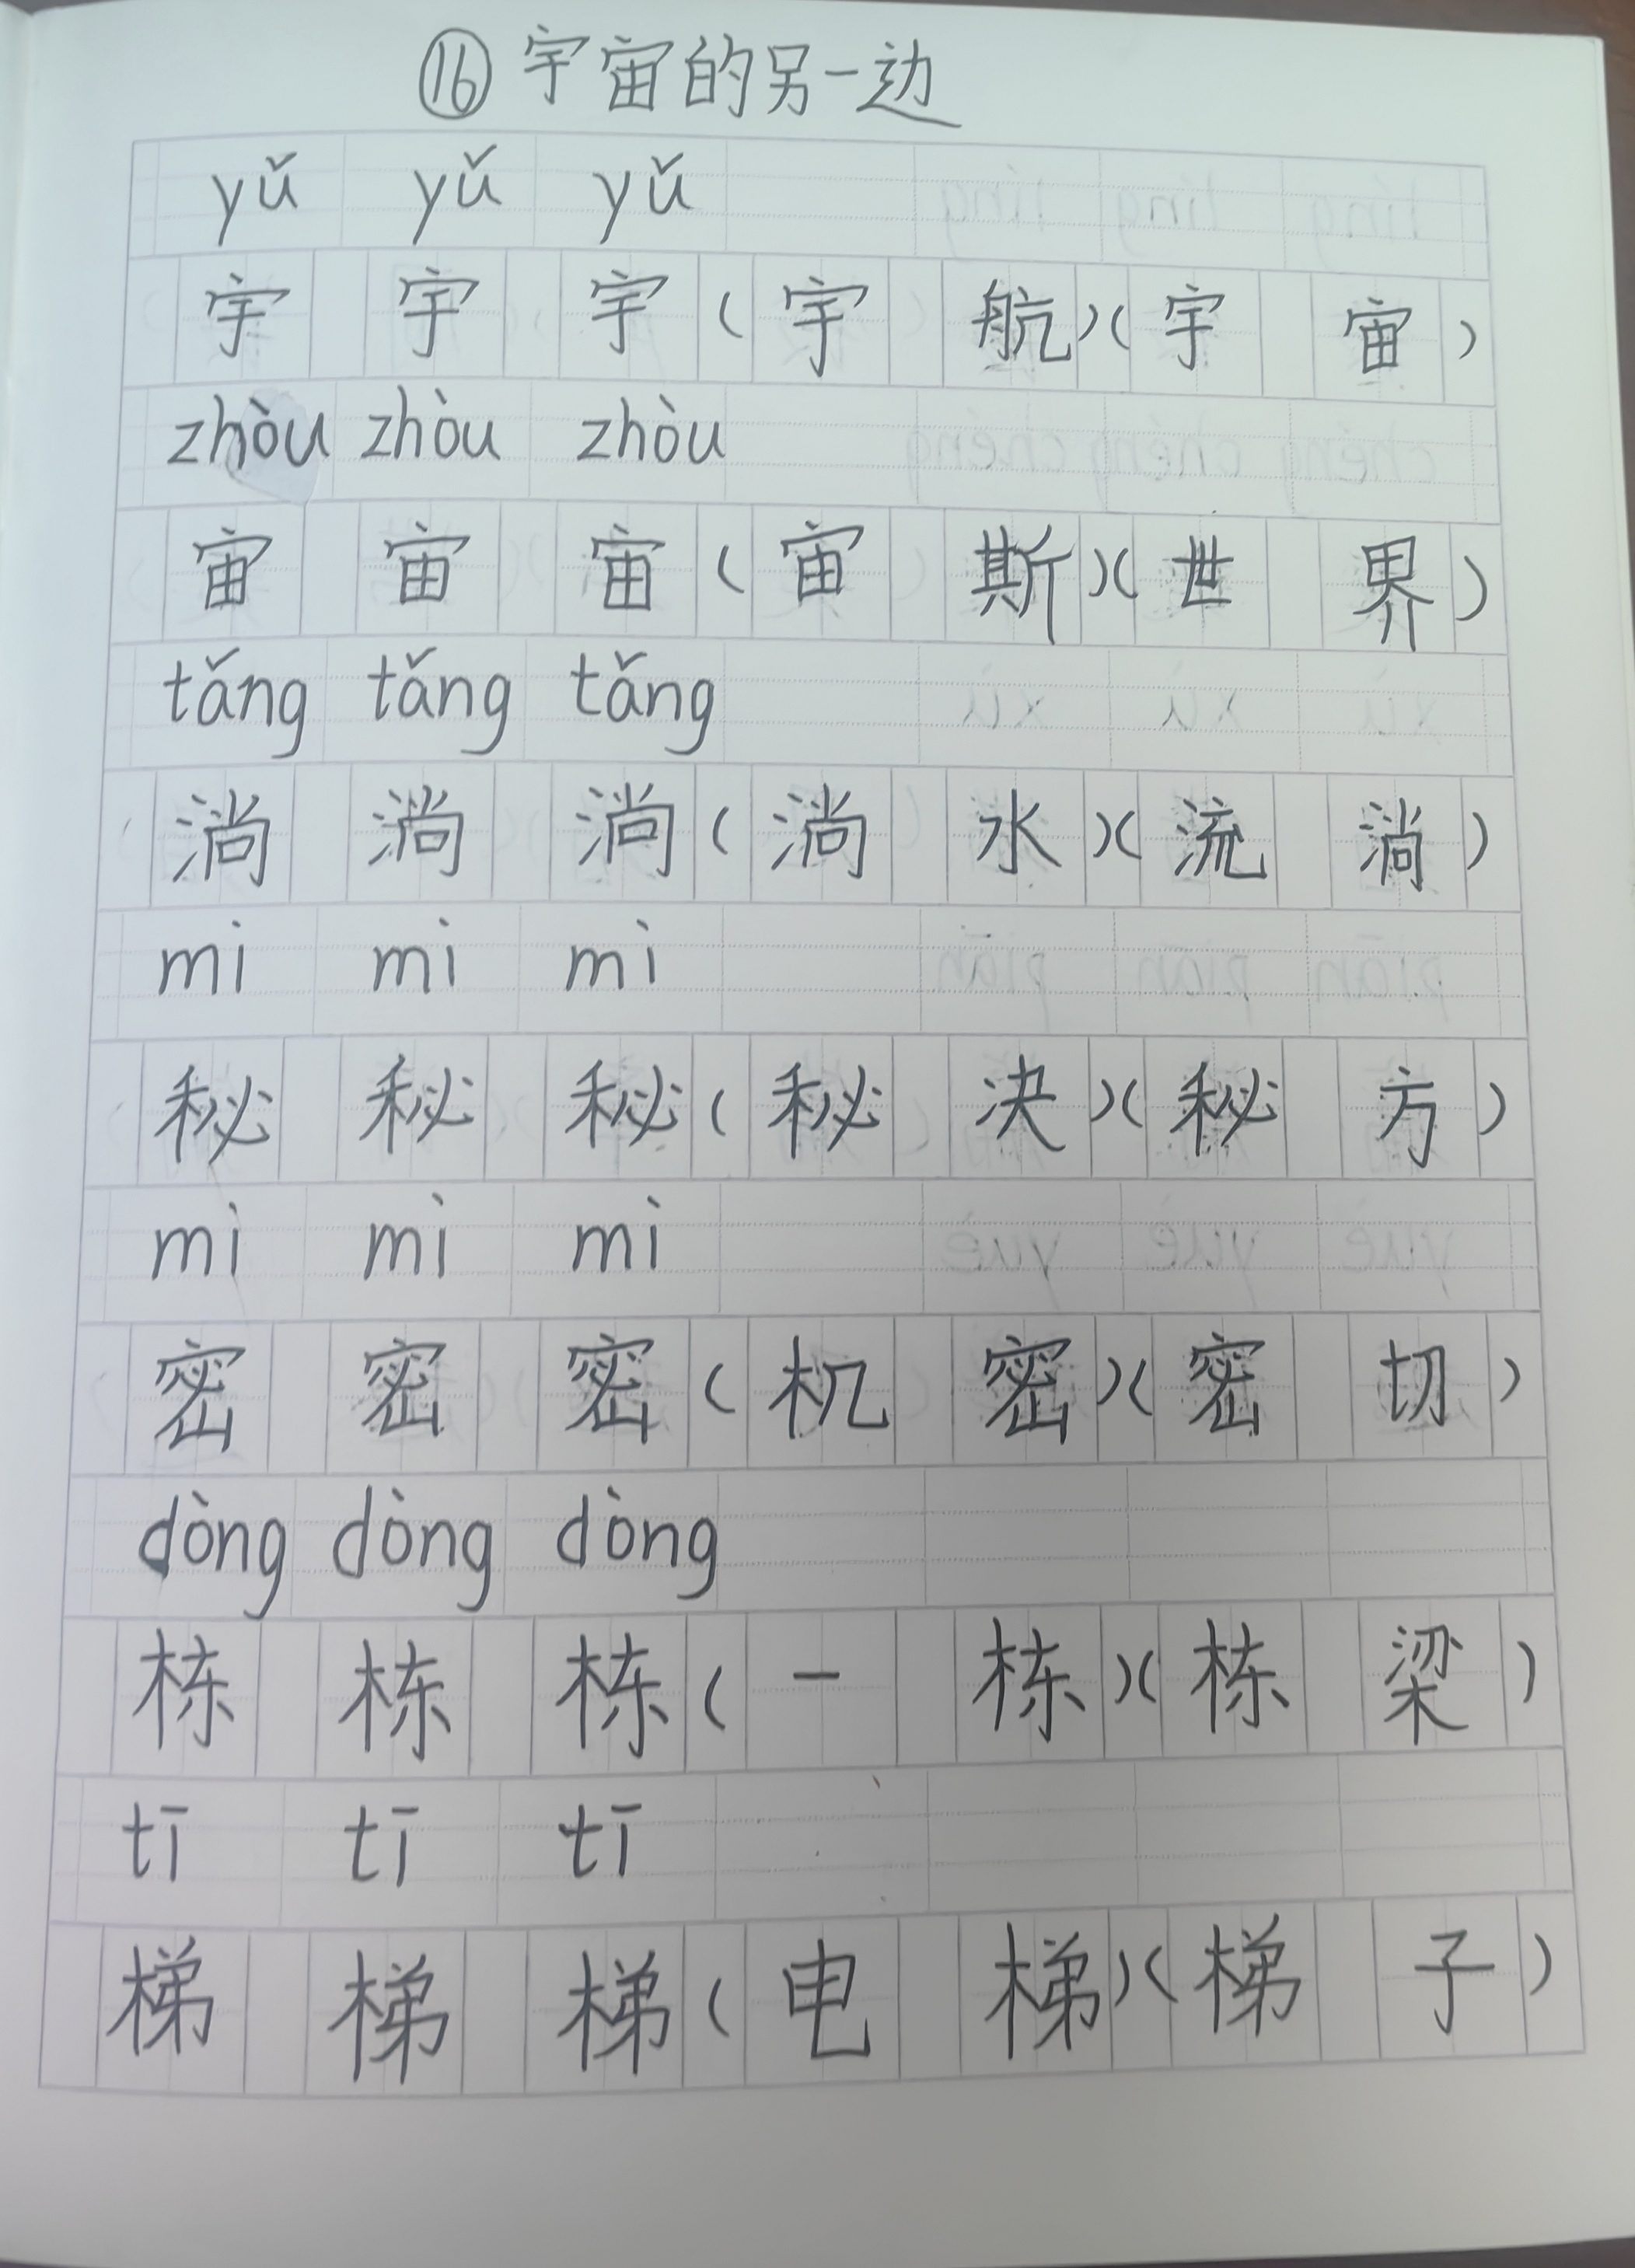 ⑯宇宙的另一边
yǔ yǔ yǔ
宇 宇 宇(宇 航)(宇 宙)
zhòu zhòu zhòu
宙 宙 宙(宙 斯)(世 界)
tǎng tǎng tǎng
淌 淌 淌(淌 水)(流 淌)
mì mì mì
秘 秘 秘(秘 决)(秘 方)
mì mì mì
密 密 密(机 密)(密 切)
dòng dòng dòng
栋 栋 栋(一 栋)(栋 梁)
tī tī tī
梯 梯 梯(电 梯)(梯 子)